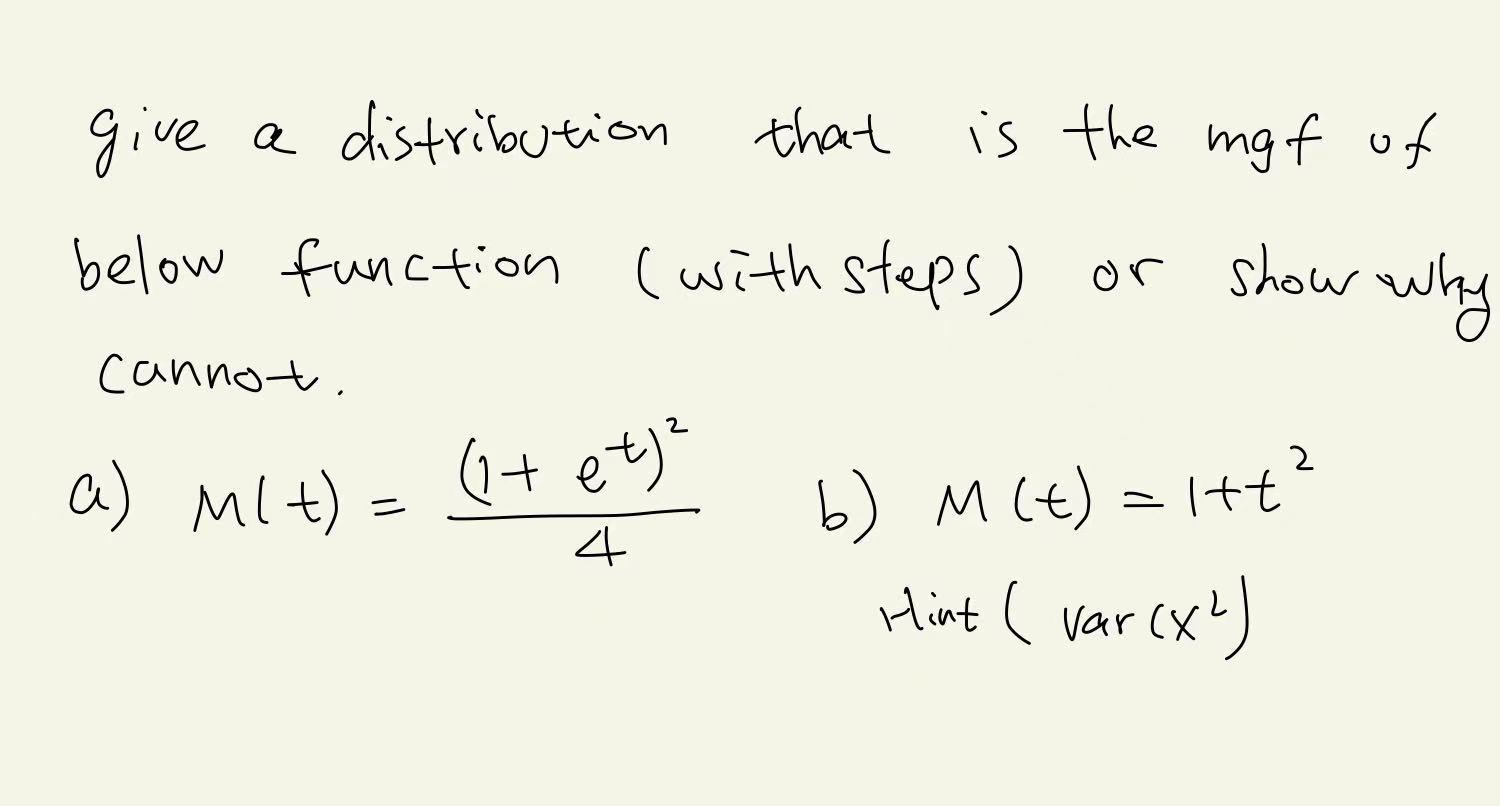 give a distribution that is the mgf of
below function (with steps) or show why
cannot.
a) M(t) = (1 + e^t)^2 / 4 b) M(t) = 1+t^2
Hint ( var(x^2)